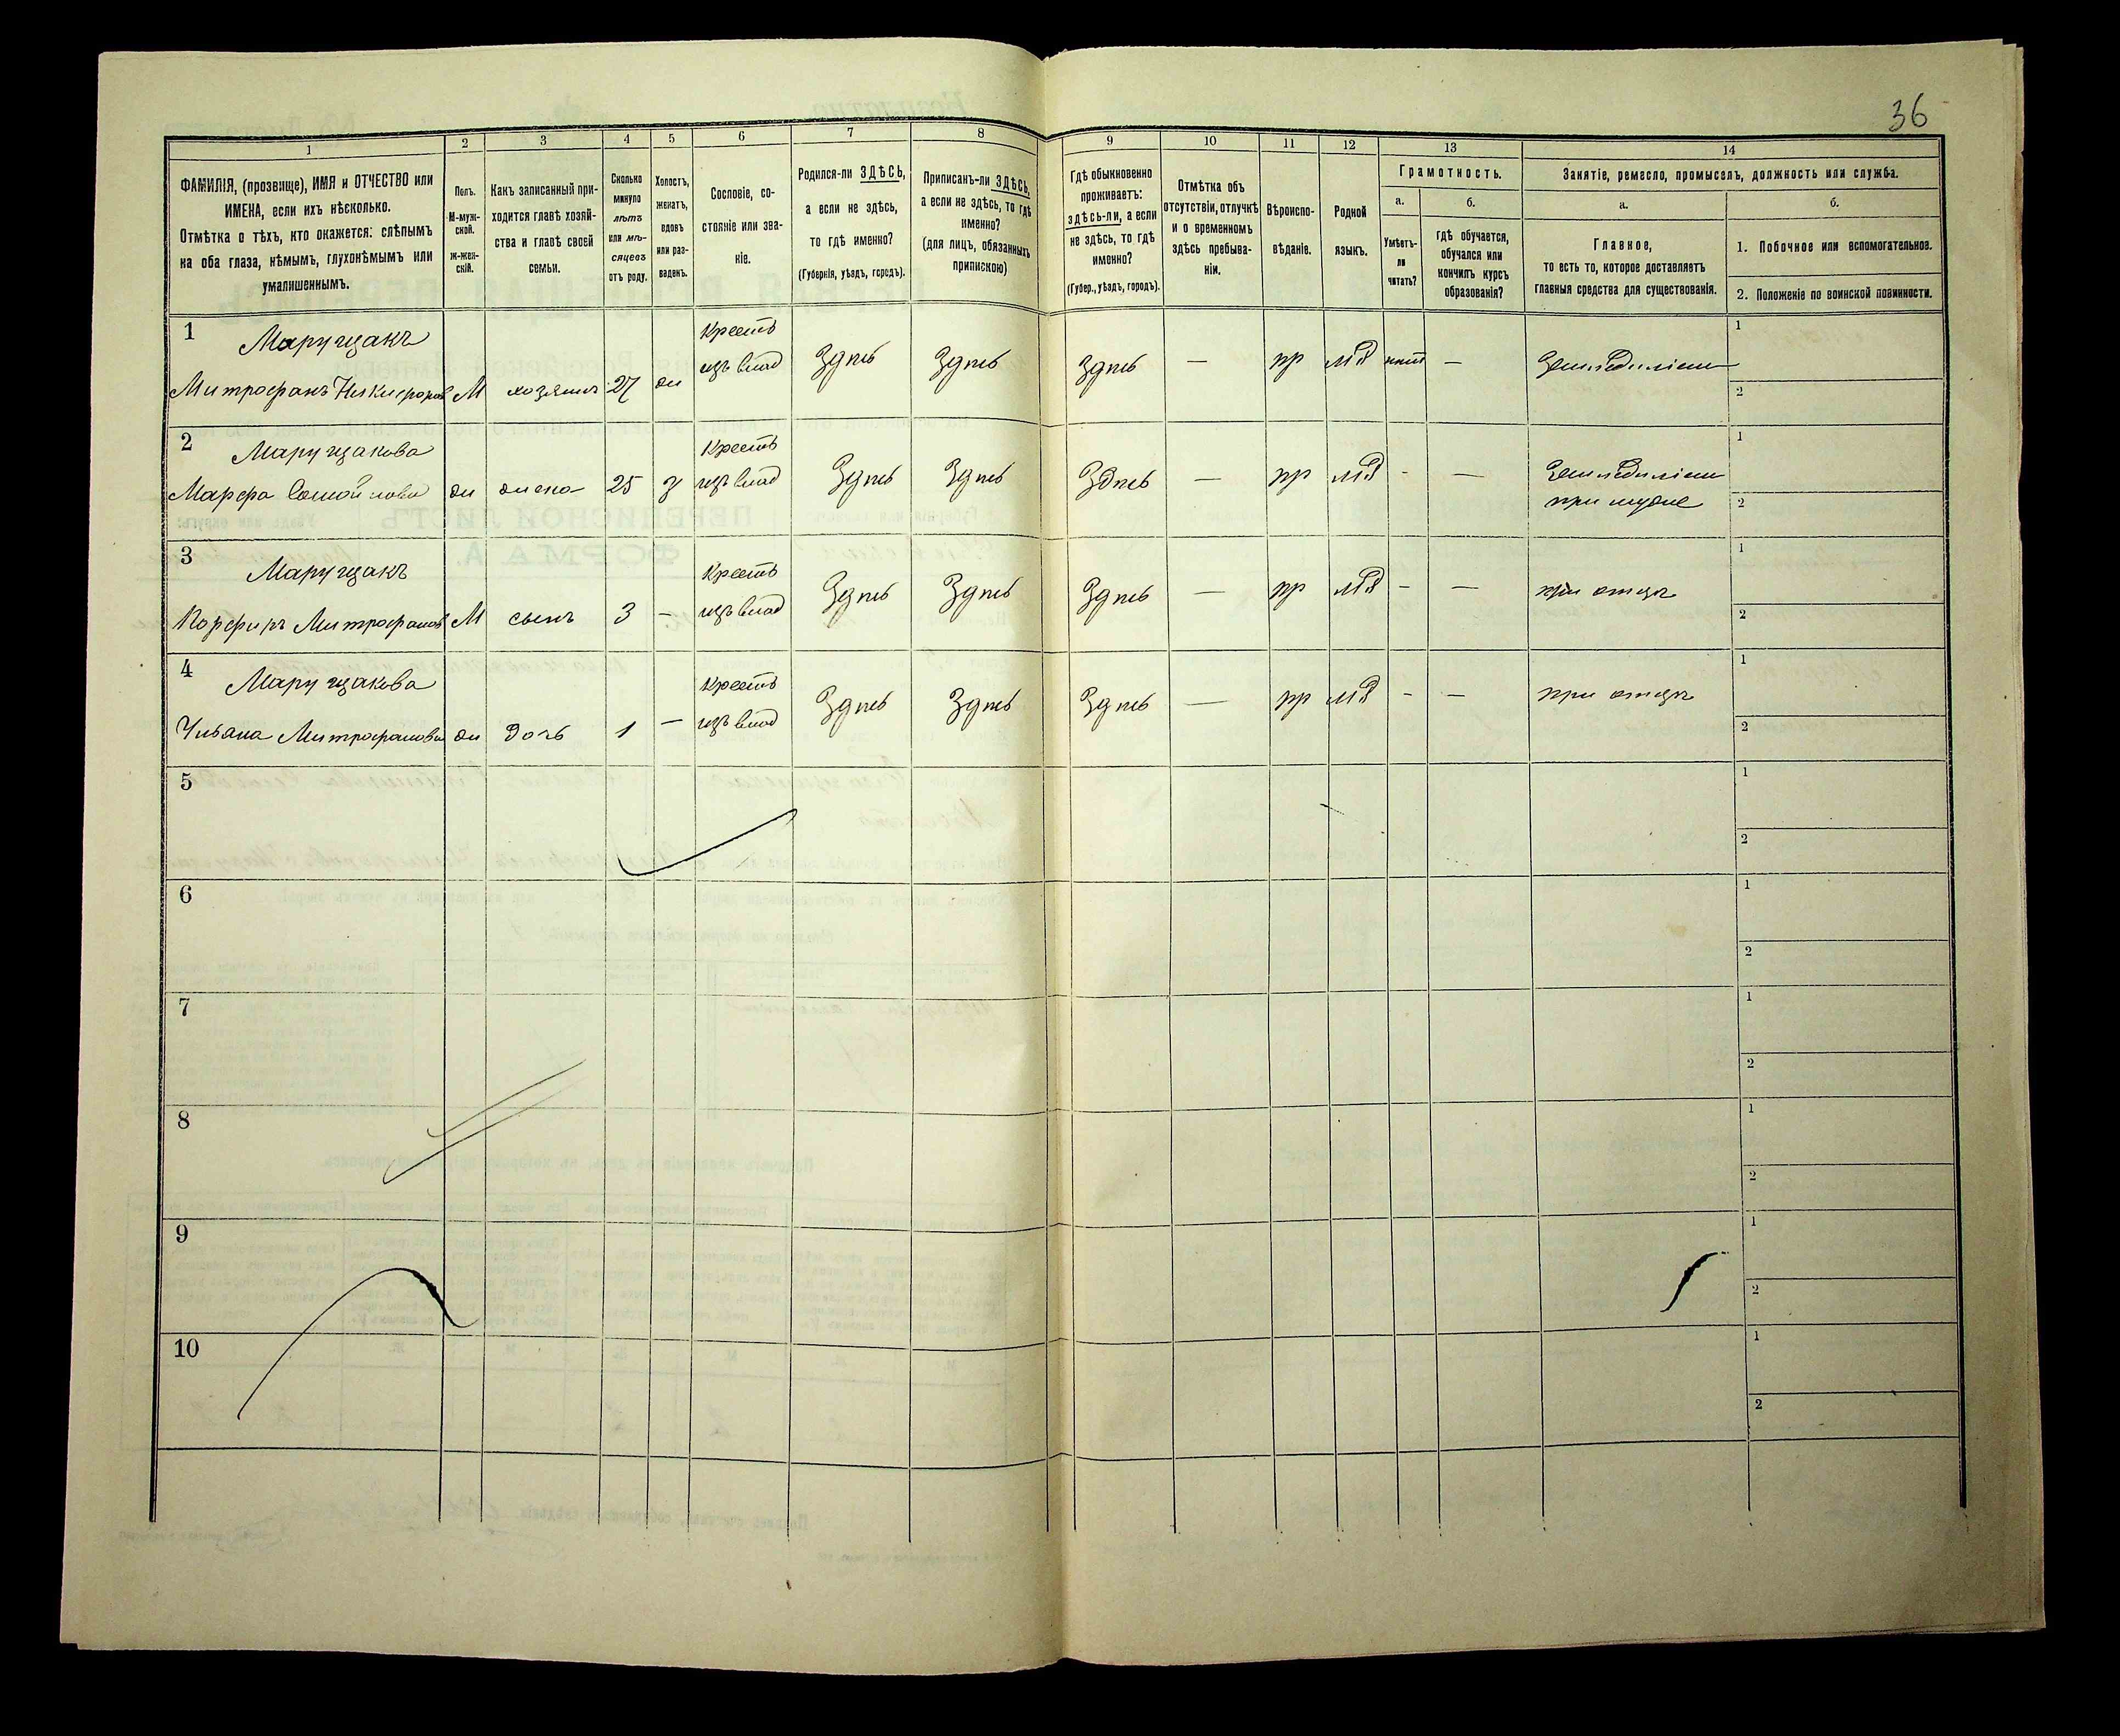 36
1 2 3 4 5 6 7 8 9 10 11 12 13 14
ФАМИЛІЯ, (прозвище), ИМЯ и ОТЧЕСТВО или
ИМЕНА, если ихъ нѣсколько.
Отмѣтка о тѣхъ, кто окажется: слѣпымъ
на оба глаза, нѣмымъ, глухонѣмымъ или
умалишеннымъ.
Полъ.
М-муж-
ской.
Ж-жен-
скій.
Какъ записанный при-
ходится главѣ хозяй-
ства и главѣ своей
семьи.
Сколько
минуло
лѣтъ
или мѣ-
сяцевъ
отъ роду.
Холостъ,
женатъ,
вдовъ
или раз-
веденъ.
Сословіе, со-
стояніе или зва-
ніе.
Родился-ли ЗДѢСЬ,
а если не здѣсь,
то гдѣ именно?
(Губернія, уѣздъ, городъ).
Приписанъ-ли ЗДѢСЬ,
а если не здѣсь, то гдѣ
именно?
(для лицъ, обязанныхъ
припискою)
Гдѣ обыкновенно
проживаетъ:
здѣсь-ли, а если
не здѣсь, то гдѣ
именно?
(Губер., уѣздъ, городъ).
Отмѣтка объ
отсутствіи, отлучкѣ
и о временномъ
здѣсь пребыва-
ніи.
Вѣроиспо-
вѣданіе.
Родной
языкъ.
Грамотность.
а.
Умѣетъ-
ли
читать?
б.
гдѣ обучается,
обучался или
кончилъ курсъ
образованія?
Занятіе, ремесло, промыселъ, должность или служба.
а.
Главное,
то есть то, которое доставляетъ
главныя средства для существованія.
б.
1. Побочное или вспомогательное.
2. Положеніе по воинской повинности.
1 Марущакъ Крестъ 1
Митрофанъ Никифоров М хозяинъ 27 ж изъ влад Здѣсь Здѣсь Здѣсь — пр мл нѣт — Земледѣліем 2
2 Марущакова Крестъ 1
Марфа Самойлова ж жена 25 з изъ влад Здѣсь Здѣсь Здѣсь — пр мл - — Земледѣліем
при мужѣ 2
3 Марущакъ Крестъ 1
Порфиръ Митрофанов М сынъ 3 — изъ влад Здѣсь Здѣсь Здѣсь — пр мл - — при отцѣ 2
4 Марущакова Крестъ 1
Митрофанова ж дочь 1 — изъ влад Здѣсь Здѣсь Здѣсь — пр мл - — при отцѣ 2
5 1
2
6 1
2
7 1
2
8 1
2
9 1
2
10 1
2